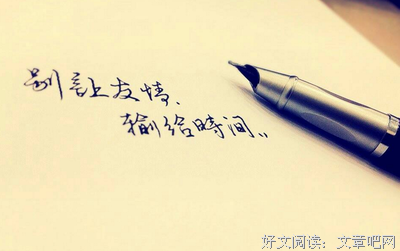 别让友情、
输给時间..
好文阅读：文章吧网